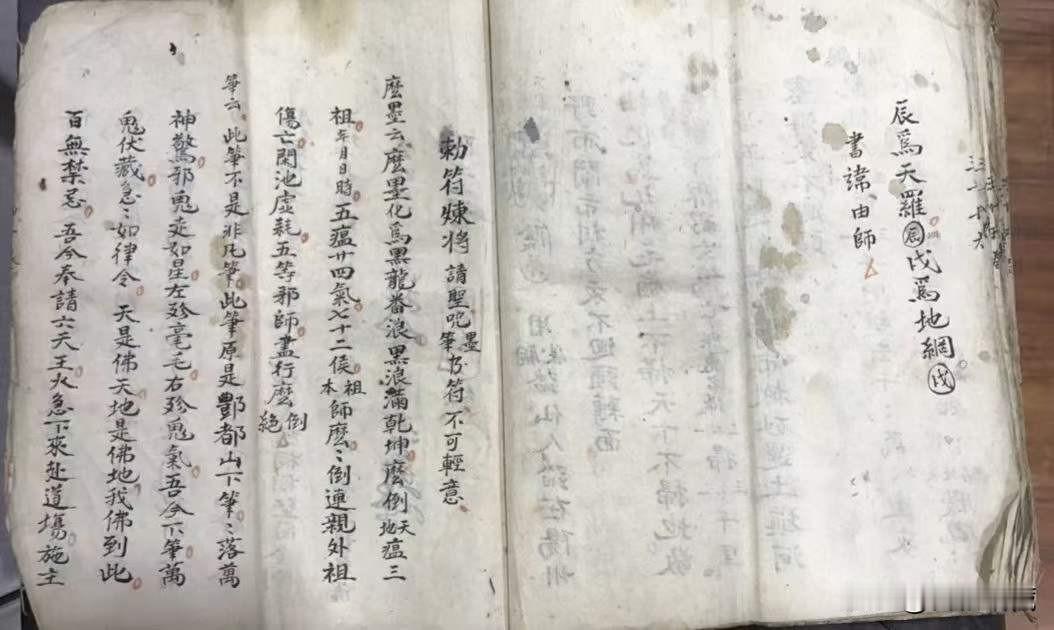 辰爲天羅 辰 戌爲地網 戌
書諱由師
勅符煉將 請聖咒墨筆及符不可輕意
麽墨云麽墨化爲黑龍番浪黒浪滿乾坤麽倒天地瘟三
祖年月日時五瘟廿四氣七十二侯本祖師麽〻倒連親外祖
傷亡閑池虛耗五等邪師盡行麽倒絶
筆云此筆不是非凡筆此筆原是酆都山下筆〻落萬
神驚邪鬼走如星左殄毫毛右殄鬼氣吾今下筆萬
鬼伏藏急〻如律令 天是佛天地是佛地我佛到此
百無禁忌 吾今奉請六天王火急下來赴道塲施主